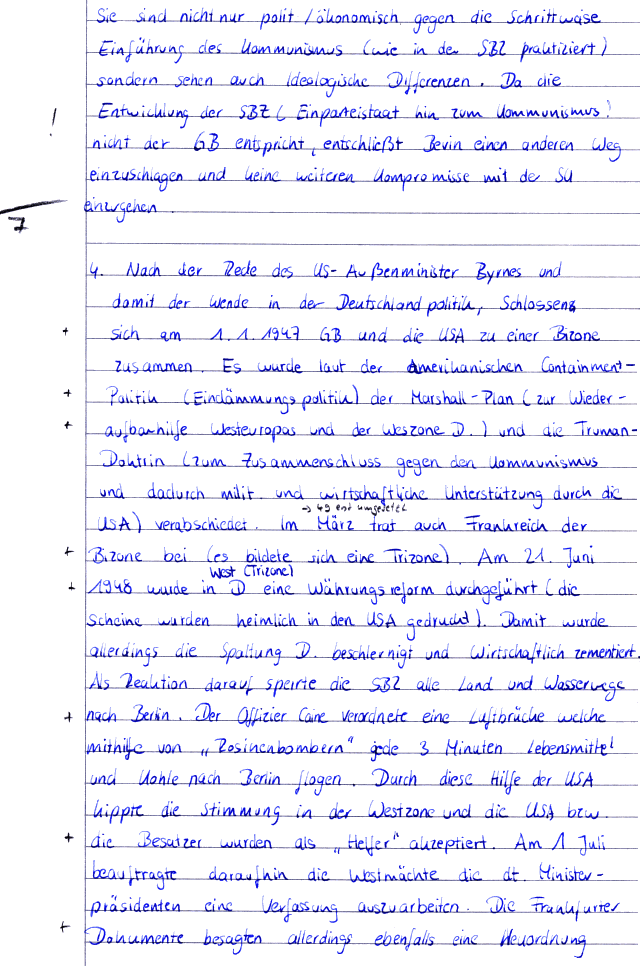 Sie sind nicht nur polit / ökonomisch gegen die Schrittwaise
Einführung des Kommunismus (wie in der SBZ praktiziert)
sondern sehen auch Ideologische Differenzen. Da die
Entwicklung der SBZ ( Einparteistaat hin zum Kommunismus!
!
nicht der GB entspricht, entschließt Bevin einen anderen Weg
einzuschlagen und keine weiteren Kompromisse mit der SU
einzugehen.
7
4. Nach der Rede des US-Außenminister Byrnes und
damit der Wende in der Deutschlandpolitik, Schlossen
+ sich am 1.1.1947 GB und die USA zu einer Bizone
zusammen. Es wurde laut der Amerikanischen Containment-
+ Politik (Eindämmungspolitik) der Marshall-Plan (zur Wieder-
+ aufbauhilfe Westeuropas und der Weszone D.) und die Truman-
Doktrin (zum Zusammenschluss gegen den Kommunismus
und dadurch milit. und wirtschaftliche Unterstützung durch die
→ 49 erst umgesetzt
USA) verabschiedet. Im März trat auch Frankreich der
+ Bizone bei (es bildete sich eine Trizone). Am 21. Juni
West (Trizone)
+ 1948 wurde in D eine Währungsreform durchgeführt (die
Scheine wurden heimlich in den USA gedruckt). Damit wurde
allerdings die Spaltung D. beschlernigt und Wirtschaftlich zementiert.
Als Reaktion darauf sperrte die SBZ alle Land und Wasserwege
+ nach Berlin. Der Offizier verordnete eine Luftbrücke welche
mithilfe von „Rosinenbombern" jede 3 Minuten Lebensmittel
und Kohle nach Berlin flogen. Durch diese Hilfe der USA
kippte die Stimmung in der Westzone und die USA bzw.
+ die Besatzer wurden als „Helfer" akzeptiert. Am 1 Juli
beauftragte daraufhin die Westmächte die dt. Minister-
präsidenten eine Verfassung auszuarbeiten. Die Frankfurter
+ Dokumente besagten allerdings ebenfalls eine Neuordnung